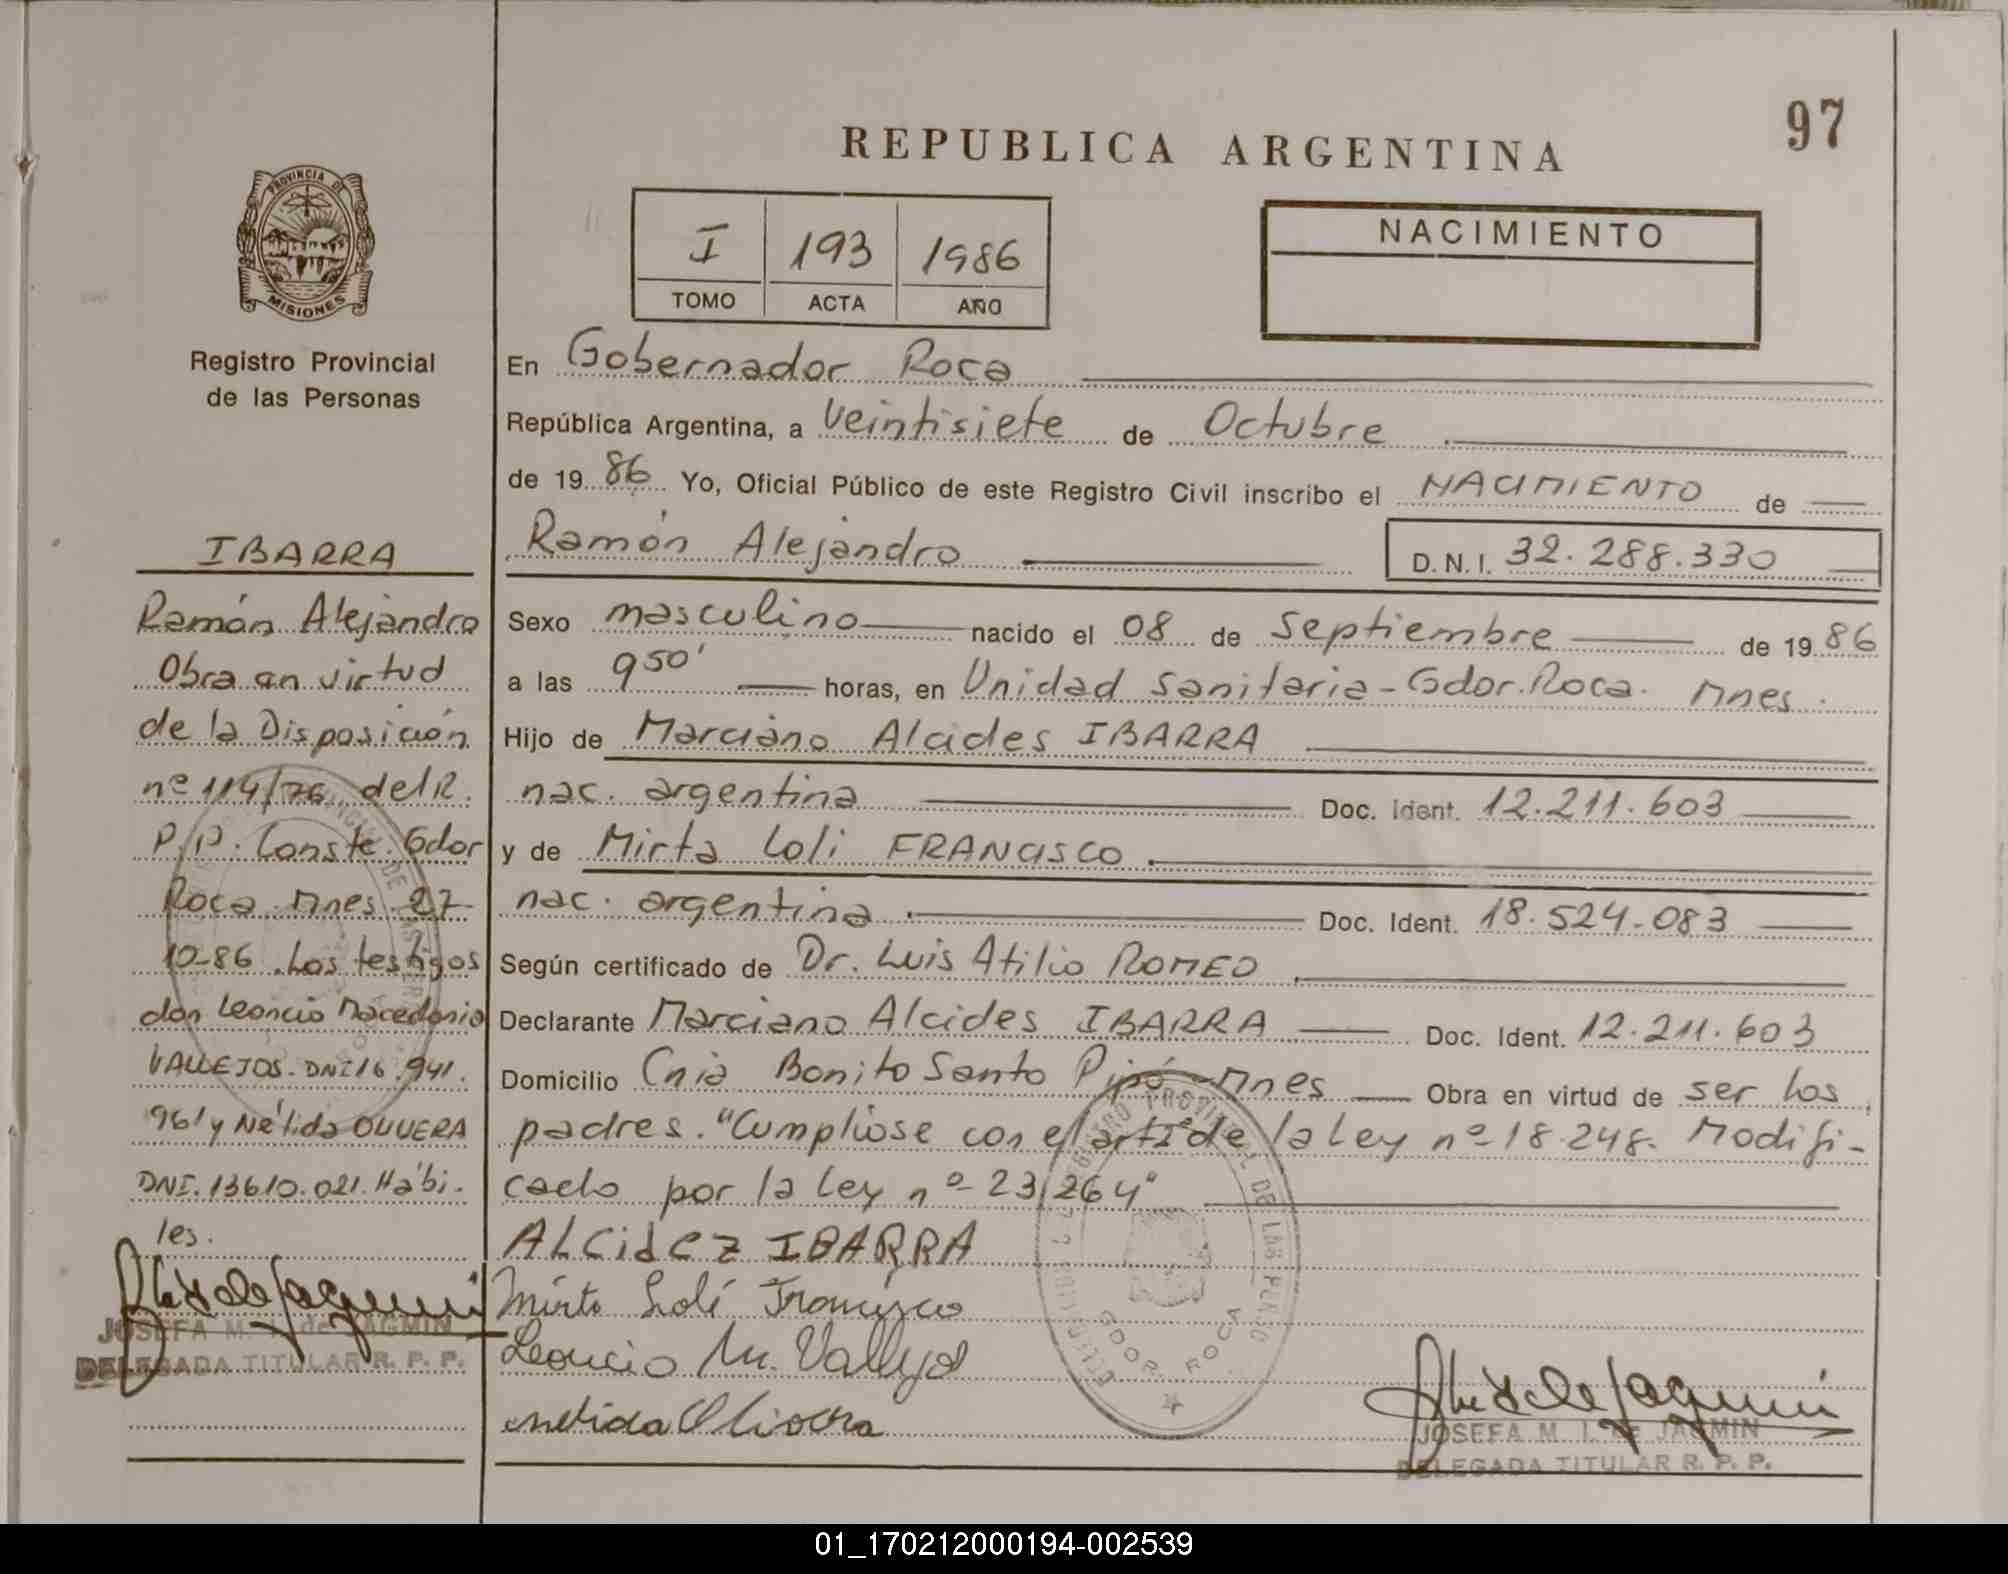 97
REPUBLICA ARGENTINA
PROVINCIA DE
MISIONES
Registro Provincial
de las Personas
I 193 1986
TOMO ACTA AÑO
NACIMIENTO
IBARRA
Ramón Alejandro
Obra en virtud
de la Disposición
nº 114/76 del R.
P.P. Conste. Gdor
Roca. Mnes. 27
10-86. Los testigos
don Leoncio Macedonio
VALLEJOS. DNI 16.941.
961 y Nélida OLIVERA
DNI. 13610.021. Hábi-
les.
JOSEFA M. I. de JAGMIN
DELEGADA TITULAR R. P. P.
En Gobernador Roca
República Argentina, a Veintisiete de Octubre
de 19 86 Yo, Oficial Público de este Registro Civil inscribo el NACIMIENTO de
Ramón Alejandro D.N.I. 32.288.330
Sexo masculino nacido el 08 de Septiembre de 19 86
a las 950' horas, en Unidad Sanitaria-Gdor.Roca. Mnes.
Hijo de Marciano Alcides IBARRA
nac. argentina Doc. Ident. 12.211.603
y de Mirta Loli FRANCISCO
nac. argentina Doc. Ident. 18.524.083
Según certificado de Dr. Luis Atilio ROMEO
Declarante Marciano Alcides IBARRA Doc. Ident. 12.211.603
Domicilio Cnia Bonito Santo Pipó-Mnes Obra en virtud de ser los
padres. "Cumplióse con el art 1º de la Ley nº 18.248. Modifi-
cado por la Ley nº 23.264"
ALCidEZ IBARRA
Mirta Loli Francisco
Leoncio M. Vallejo
nelida Olivera
GDOR. ROCA
JOSEFA M. I. de JAGMIN
DELEGADA TITULAR R. P. P.
01_170212000194-002539